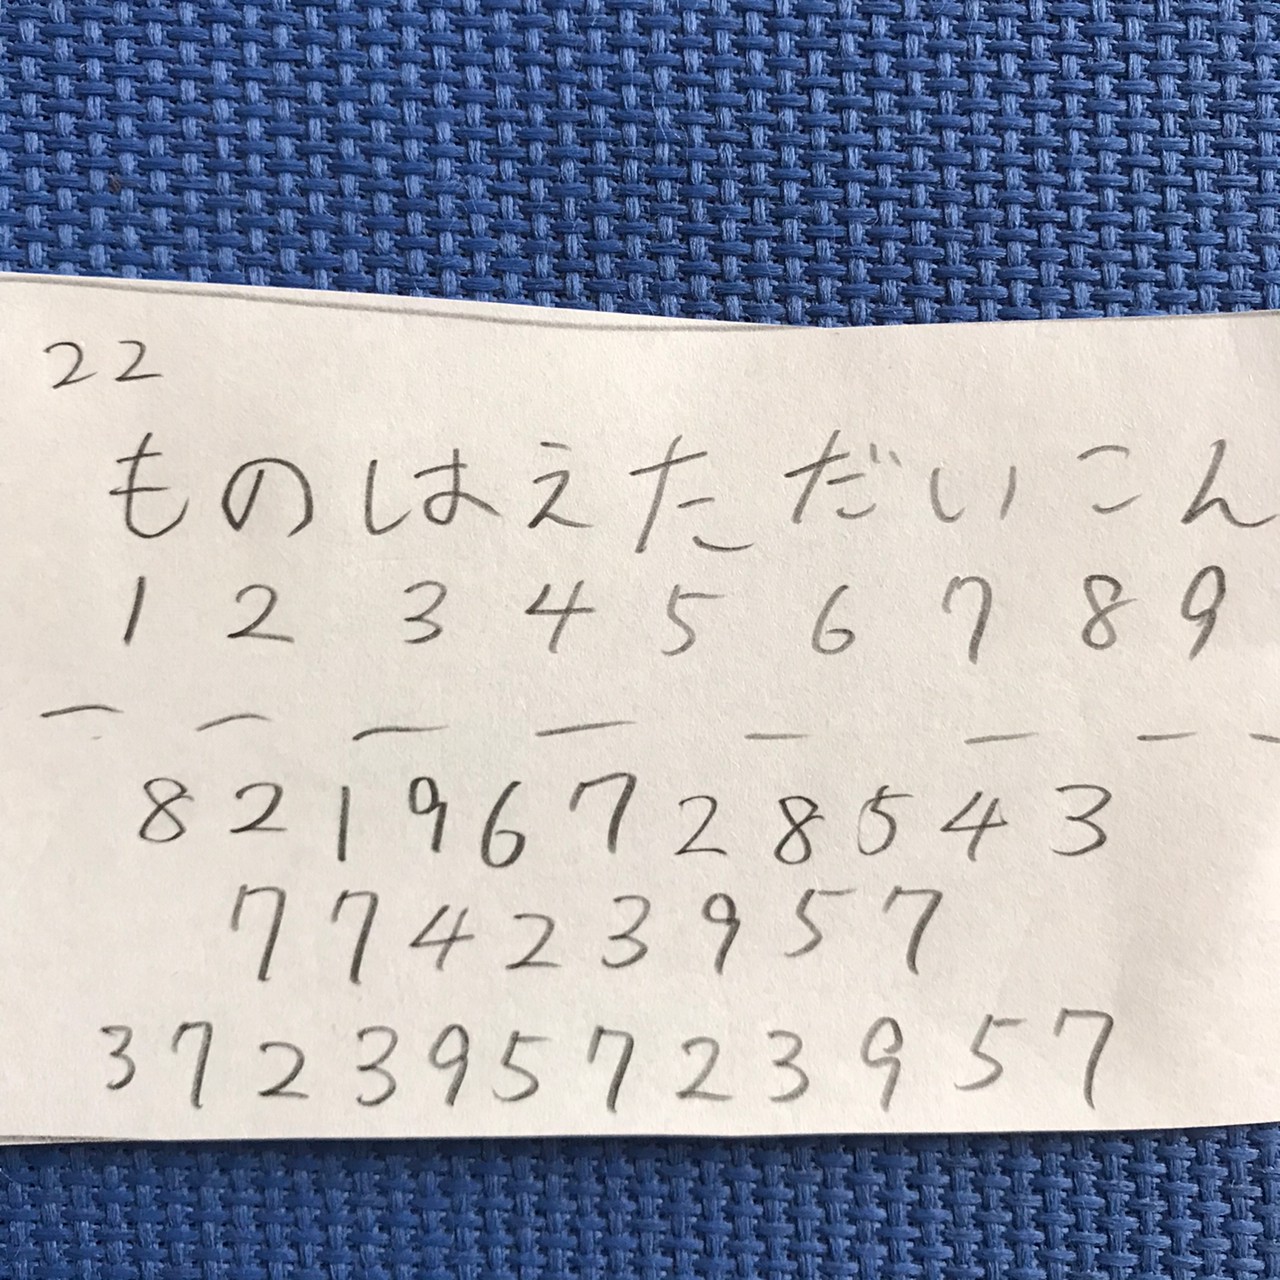 22
ものはえただいこん
1 2 3 4 5 6 7 8 9
— — — — — — — —
8 2 1 9 6 7 2 8 5 4 3
7 7 4 2 3 9 5 7
3 7 2 3 9 5 7 2 3 9 5 7